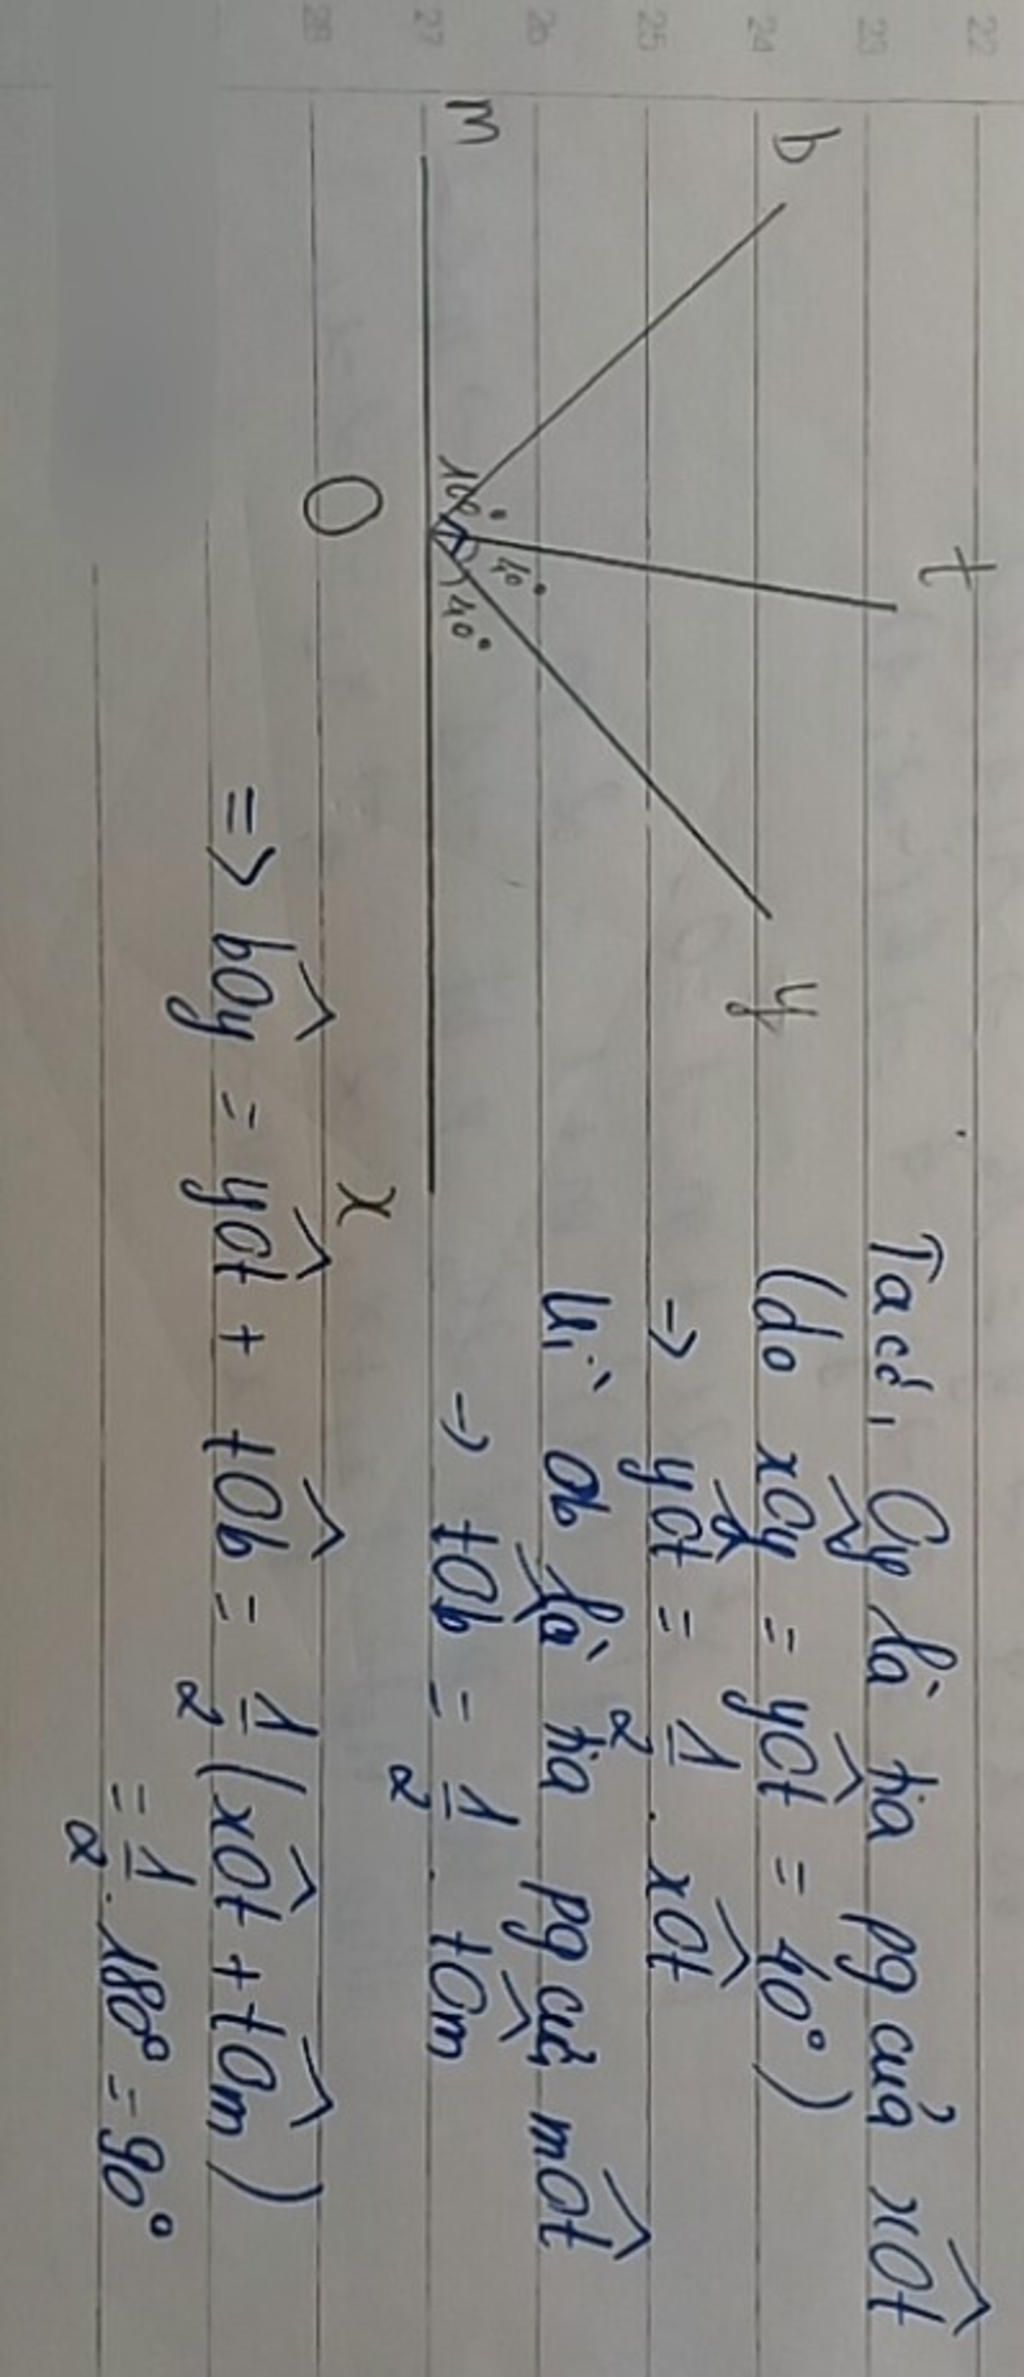 22
23
24
25
26
27
28
t
b
y
m
100°
40°
40°
O
x
Ta có, Oy là tia pg của xOt
(do xOy = yOt = 40°)
→ yOt = 1/2 . xOt
Vì Ob là tia pg của mOt
→ tOb = 1/2 . tOm
=> bOy = yOt + tOb = 1/2 (xOt + tOm)
= 1/2 . 180° = 90°